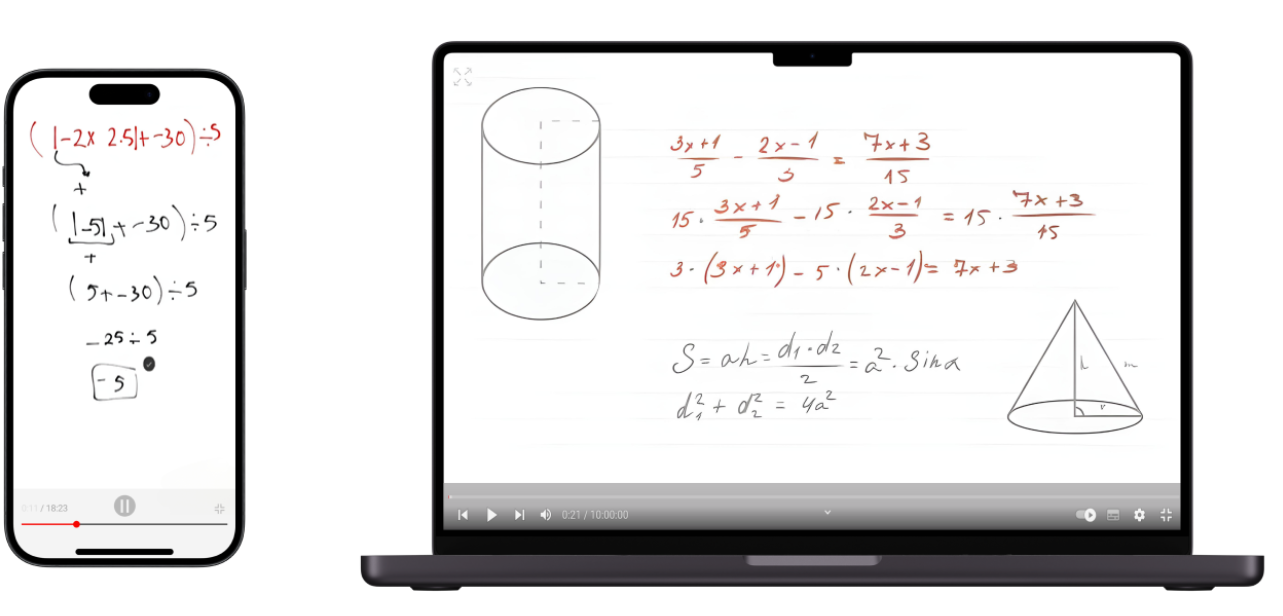 (|-2x 2.5|+-30)÷5
+
(|-5|+-30)÷5
+
(5+-30)÷5
-25÷5
-5
0:11 / 18:23
(3x+1)/5 - (2x-1)/3 = (7x+3)/15
15·(3x+1)/5 -15·(2x-1)/3 = 15·(7x+3)/15
3·(3x+1)-5·(2x-1)= 7x+3
S= ah= (d₁·d₂)/2 = a²·Sinα
d₁² + d₂² = 4a²
h
m
r
0:21 / 10:00:00